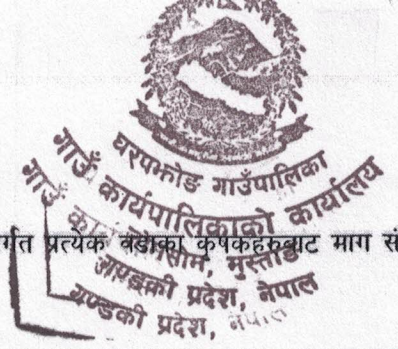 घरपझोङ गाउँपालिका
गाउँ कार्यपालिकाको कार्यालय
र्गत प्रत्येक वडाका कृषकहरुबाट माग सं
जोमसोम, मुस्ताङ
गण्डकी प्रदेश, नेपाल
गण्डकी प्रदेश, नेपाल